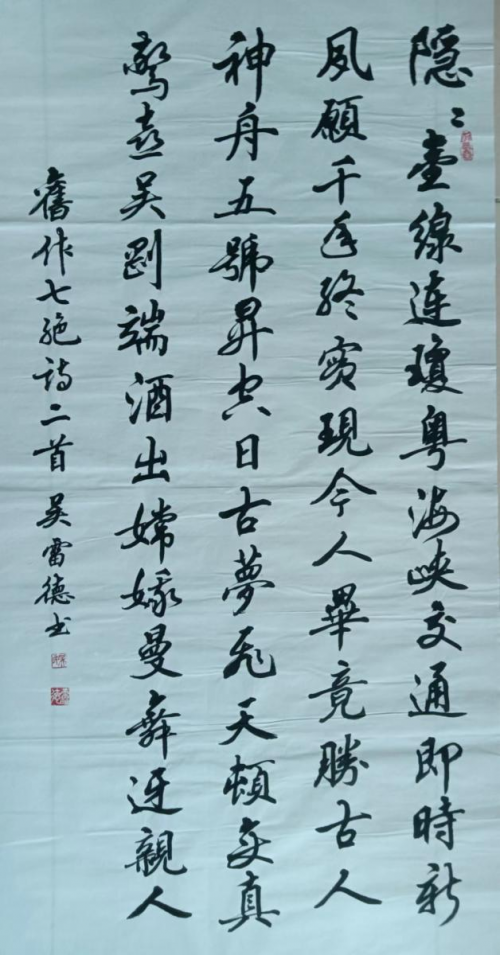 隐〻壹線連瓊粤海峡交通即時新
夙願千年終實現今人畢竟勝古人
神舟五號昇空日古夢飛天頓变真
驚喜吴剛端酒出嫦娥曼舞迓親人
舊作七絶詩二首 吴雷德书